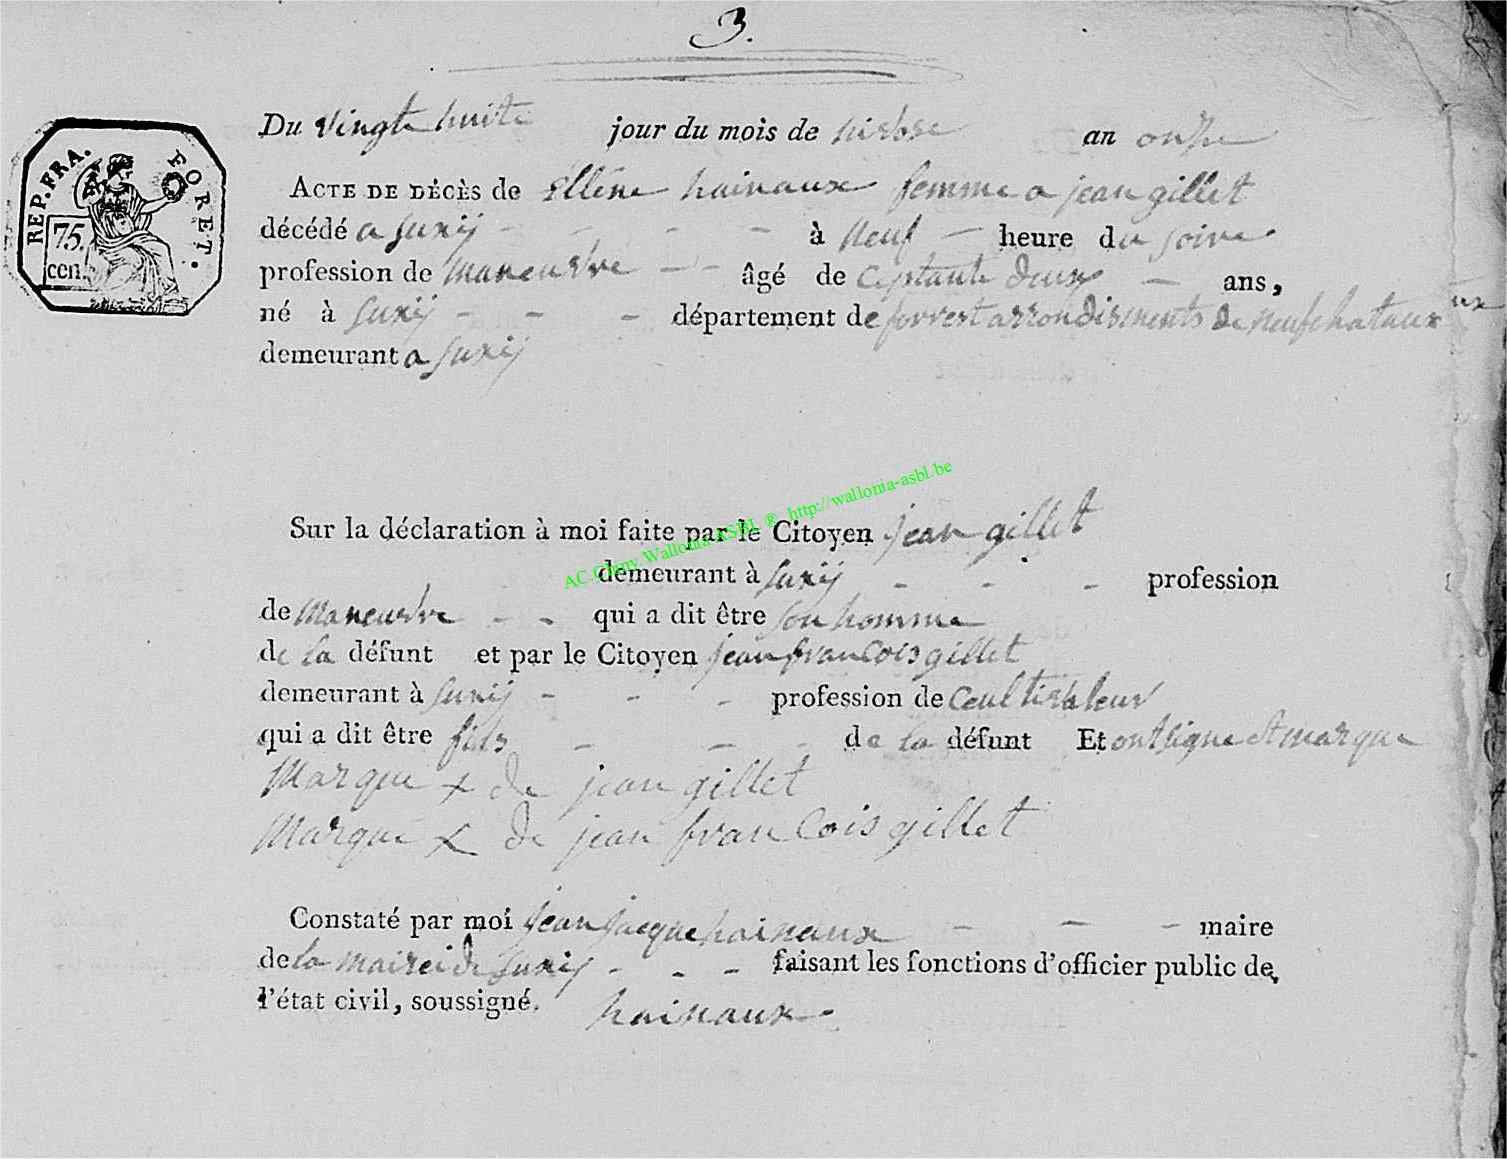 3.
REP. FRA. FORET.
75. cen.
Du vingte huite jour du mois de nivose an onze
ACTE DE DÉCÈS de Ellêne hainaux femme a jean gillet
décédé a Suxij - - - - à neuf - heure du soire
profession de maneuvre - - âgé de ceptante deux - ans,
né à Suxij - - - département de forrest arrondisments de neufchataux
demeurant a Suxij
Sur la déclaration à moi faite par le Citoyen jean gillet
AC Chiny Wallonia ASBL ® http://wallonia-asbl.be
demeurant à Suxij - - - profession
de maneuvre - - qui a dit être son homme
de la défunt et par le Citoyen jean francois gillet
demeurant à Suxij - - - profession de ceultivateur
qui a dit être fids - - - de la défunt Et ont signe et marque
Marque + de jean gillet
Marque + de jean francois gillet
Constaté par moi jean jacque hainaux - - - maire
de la mairei de Suxij - - - faisant les fonctions d'officier public de
l'état civil, soussigné. hainaux